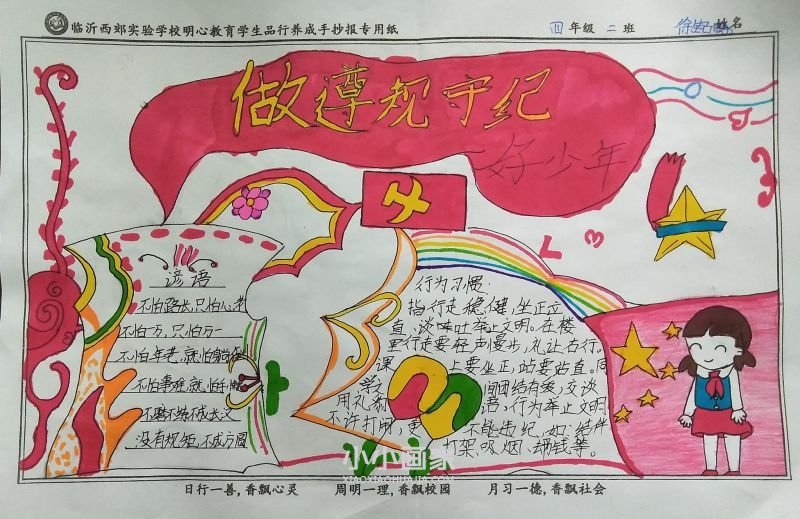 临沂西郊实验学校明心教育学生品行养成手抄报专用纸 四 年级 二 班 姓名
做遵规守纪
好少年
谚语
不怕路长,只怕心老
不怕一万,只怕万一
不怕年老,就怕
不怕事难,就怕
不成
没有规矩,不成方圆
行为习惯:
指行走稳健,坐正立
直、谈吐举止文明。在楼
里行走要轻声慢步,礼让右行。
课上要坐正,站要站直。同
学间团结有爱,交谈
用礼貌语,行为举止文明
不许打闹,更不能违纪,如:结伴
打架、吸烟、
等。
小小画家
XIAOXIAOHUAJIA.COM
日行一善,香飘心灵 周明一理,香飘校园 月习一德,香飘社会